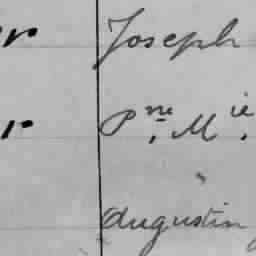 r Joseph
r Pne. Mie.
Augustin